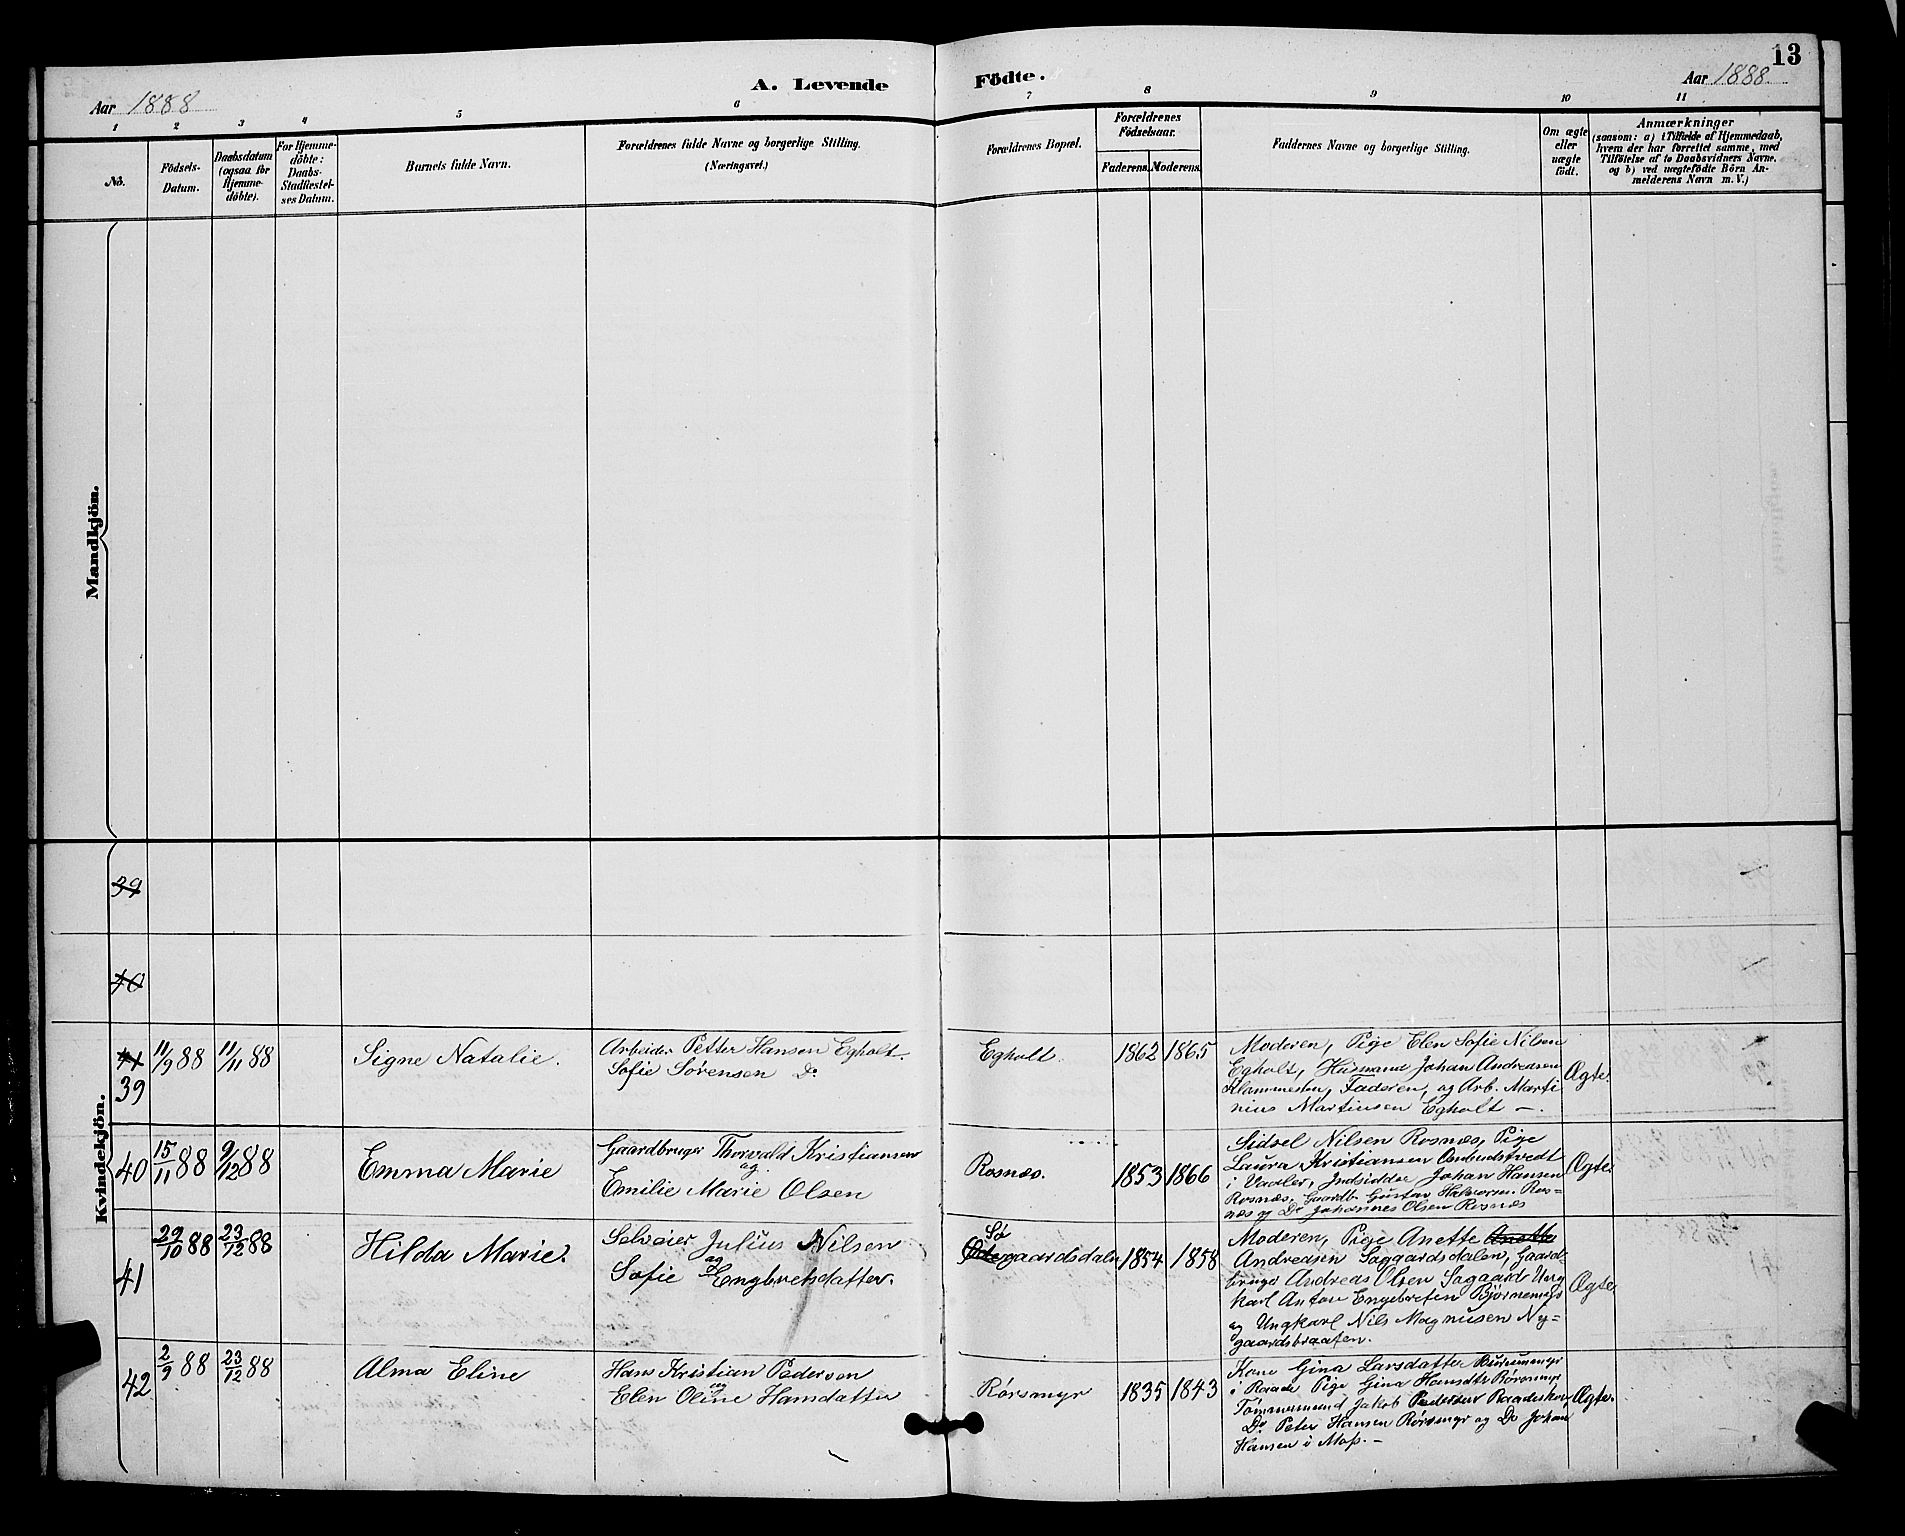 13
A. Levende Födte.
Aar 1888
Aar 1888.
1 2 3 4 5 6 7 8 9 10 11
No.
Födsels-
Datum.
Daabsdatum
(ogsaa for
Hjemme-
döbte).
For Hjemme-
döbte:
Daabs-
Stadfestel-
ses Datum.
Barnets fulde Navn.
Forældrenes fulde Navne og borgerlige Stilling.
(Næringsvei.)
Forældrenes Bopæl.
Forældrenes
Födselsaar.
Faderens. Moderens.
Faddernes Navne og borgerlige Stilling.
Om ægte
eller
uægte
födt.
Anmærkninger
(saasom: a) i Tilfælde af Hjemmedaab,
hvem der har forrettet samme, med
Tilföielse af to Daabsvidners Navne,
og b) ved uægtefödte Börn An-
melderens Navn m. V.)
Mandkjön.
Kvindekjön.
39
40
41
39
11/9 88
11/11 88
Signe Natalie.
Arbeider Petter Hansen Egholt.
Sofie Sørensen Do
Egholt.
1862 1865
Moderen, Pige Elen Sofie Nilsen
Egholt, Husmand Johan Andreasen
Faderen, og Arb. Marti
nius Martinsen Egholt –.
Ægte.
40
15/11 88
9/12 88
Emma Marie
Gaardbruger Thorvald Kristiansen
og
Emilie Marie Olsen
Rosnæs.
1853 1866
Sidsel Nilsen Rosnæs, Pige
Laura Kristiansen Ombudstvedt
i Vaaler, Indsidder Johan Hansen
Rosnæs, Gaardb. Gustav Halvorsen Ros-
næs og Do Johannes Olsen Rosnæs
Ægte.
41
29/10 88
23/12 88
Hilda Marie.
Selveier Julius Nilsen
og
Sofie Engbretsdatter.
Sø
gaardsdalen
1854 1858
Moderen, Pige Anette Anette
Andreasen Saggaardsdalen, Gaard-
bruger Andreas Olsen Sagaard Ung
karl Anton Engebretsen Bjørnemyr
og Ungkarl Nils Magnusen Ny-
gaardsbraaten.
Ægte.
42
2/9 88
23/12 88
Alma Eline
Hans Kristian Pedersen
og
Elen Oline Hansdatter
Rørsmyr
1835 1843
Kone Gina Larsdatter
i Raade Pige Gina Hansdtr Rørsmyr
Tømmermand Jakob Pedersen
Do Peter Hansen Rørsmyr og Do Johan
Hansen i Moss. –
Ægte.